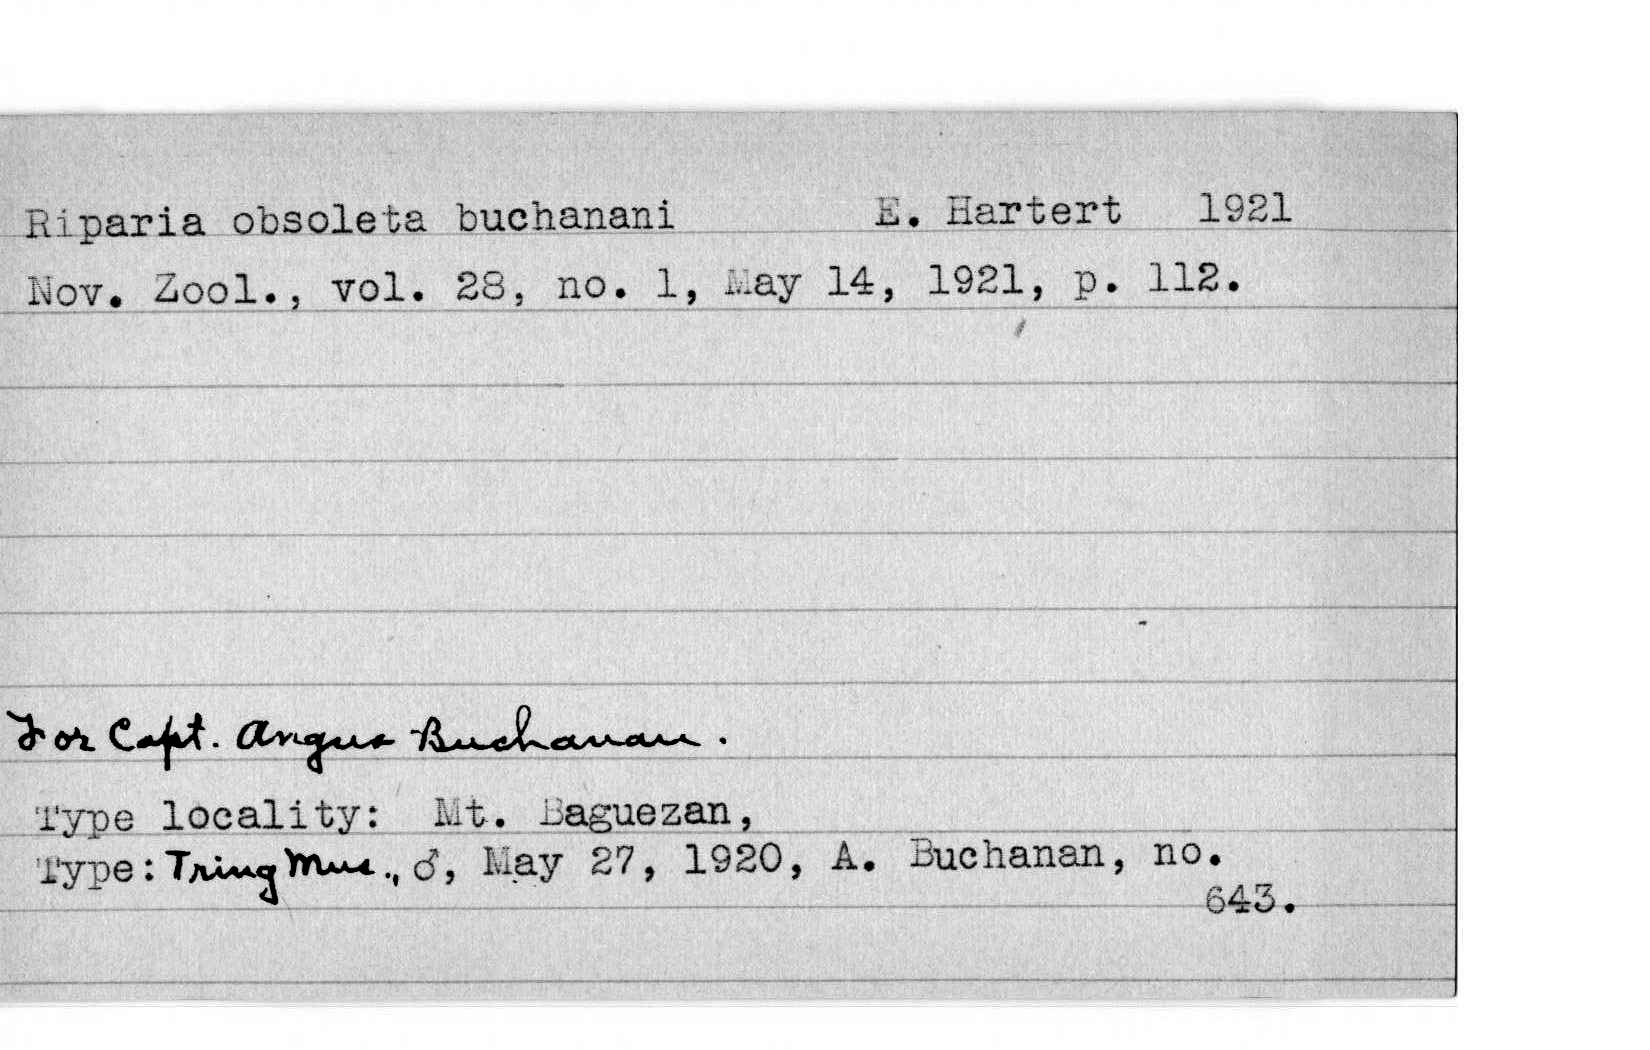 Riparia obsoleta buchanani E. Hartert 1921
Nov. Zool., vol. 28, no. 1, May 14, 1921, p. 112.
For Capt. Angus Buchanan.
Type locality: Mt. Baguezan,
Type: Tring Mus., ♂, May 27, 1920, A. Buchanan, no.
643.